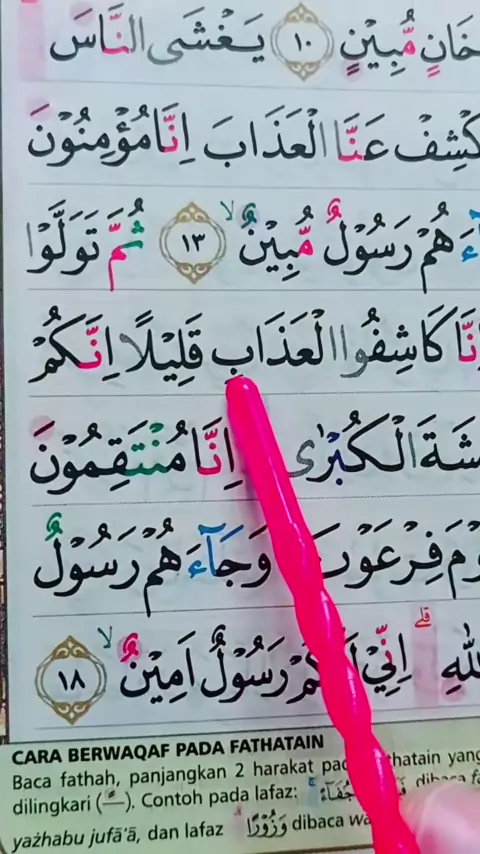 خَانٍ مُّبِيْنٍ ١٠ يَغْشَى النَّاسَ
كْشِفْ عَنَّا الْعَذَابَ اِنَّا مُؤْمِنُوْنَ
هُمْ رَسُوْلٌ مُّبِيْنٌ ۙ ١٣ ثُمَّ تَوَلَّوْا
نَّا كَاشِفُوا الْعَذَابِ قَلِيْلًا اِنَّكُمْ
شَةَ الْكُبْرٰى اِنَّا مُنْتَقِمُوْنَ
وْمَ فِرْعَوْنَ وَجَاۤءَهُمْ رَسُوْلٌ
اللّٰهِ ۗ اِنِّيْ لَكُمْ رَسُوْلٌ اَمِيْنٌ ۙ ١٨
CARA BERWAQAF PADA FATHATAIN
Baca fathah, panjangkan 2 harakat pad thatain yang
dilingkari (ـً). Contoh pada lafaz: جُفَاۤءً dibaca fa
yażhabu jufā'ā, dan lafaz وَزُوْرًا dibaca wa